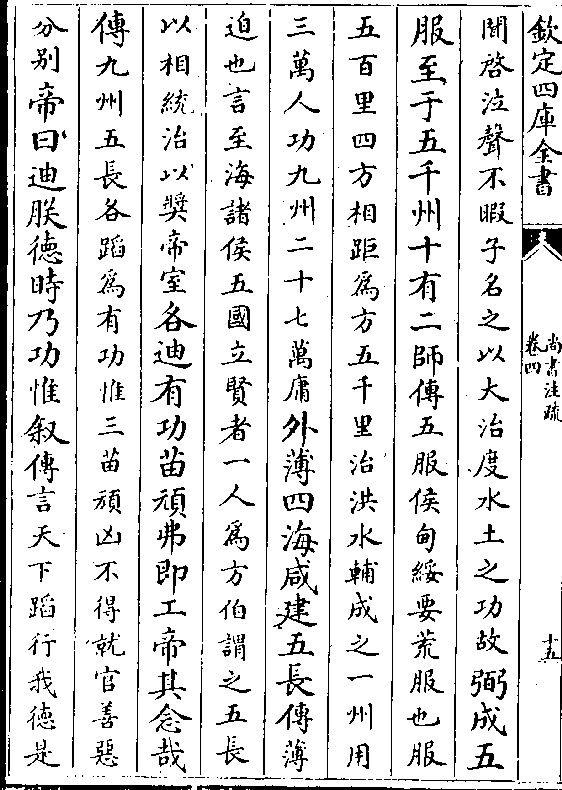 欽定四庫全書
尚書注疏
卷四
十五
聞啓泣聲不暇子名之以大治度水土之功故弼成五
服至于五千州十有二師傳五服侯甸綏要荒服也服
五百里四方相距爲方五千里治洪水輔成之一州用
三萬人功九州二十七萬庸外薄四海咸建五長傳薄
迫也言至海諸侯五國立賢者一人爲方伯謂之五長
以相統治以奬帝室各迪有功苗頑弗即工帝其念哉
傳九州五長各蹈爲有功惟三苗頑凶不得就官善惡
分别帝曰迪朕德時乃功惟叙傳言天下蹈行我德是